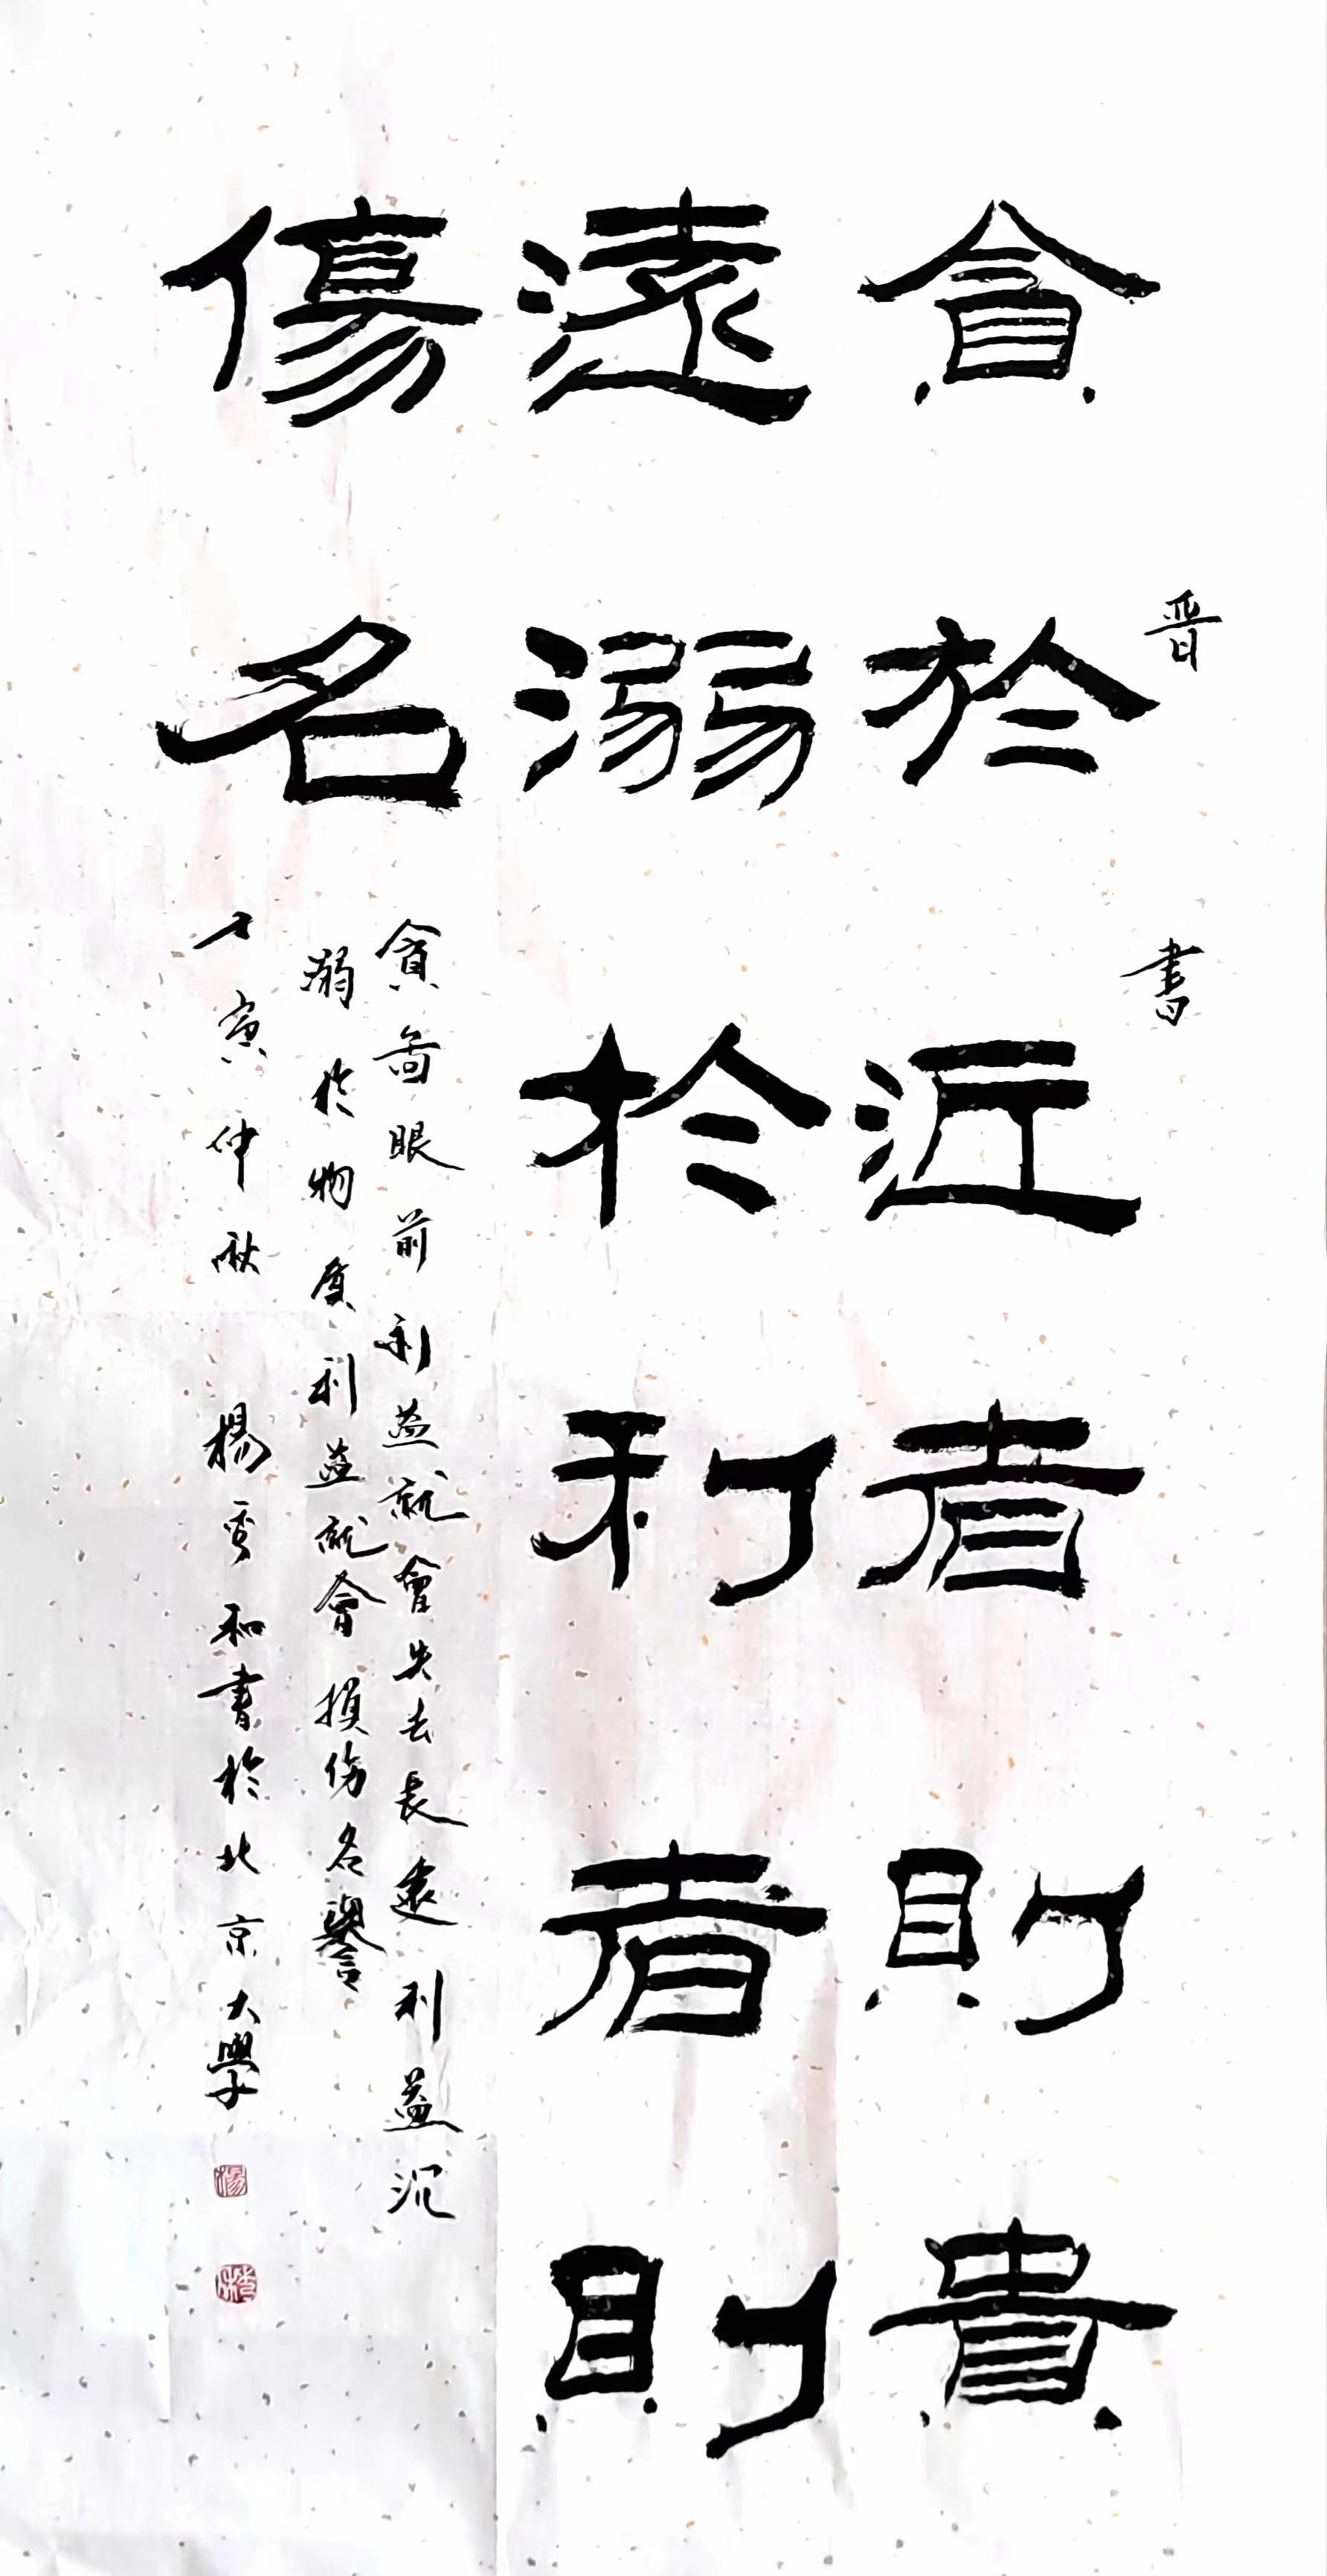 晋書
貪於近者則貴
遠溺於利者則
傷名
貪啚眼前利益就會失去長遠利益沉
溺於物质利益就會損伤名譽
壬寅仲秋 楊和書於北京大學
楊